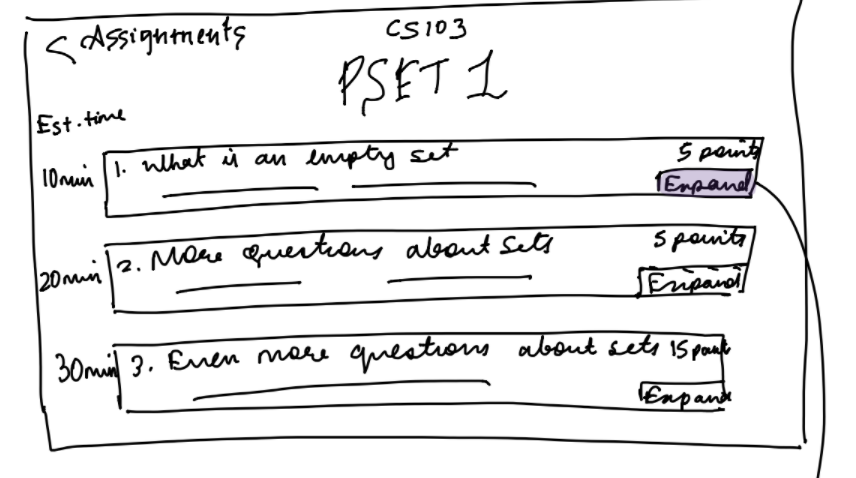 < Assignments CS103
PSET 1
Est. time
10min 1. What is an empty set 5 points
Expand
20min 2. More questions about sets 5 points
Expand
30min 3. Even more questions about sets 15 point
Expand